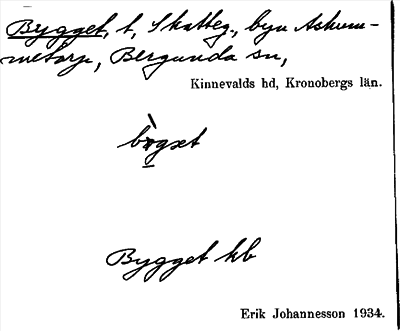 Bygget, t, Skatteg., byn Askum-
metorp, Bergunda sn,
Kinnevalds hd, Kronobergs län.
Bygget kb
Erik Johannesson 1934.